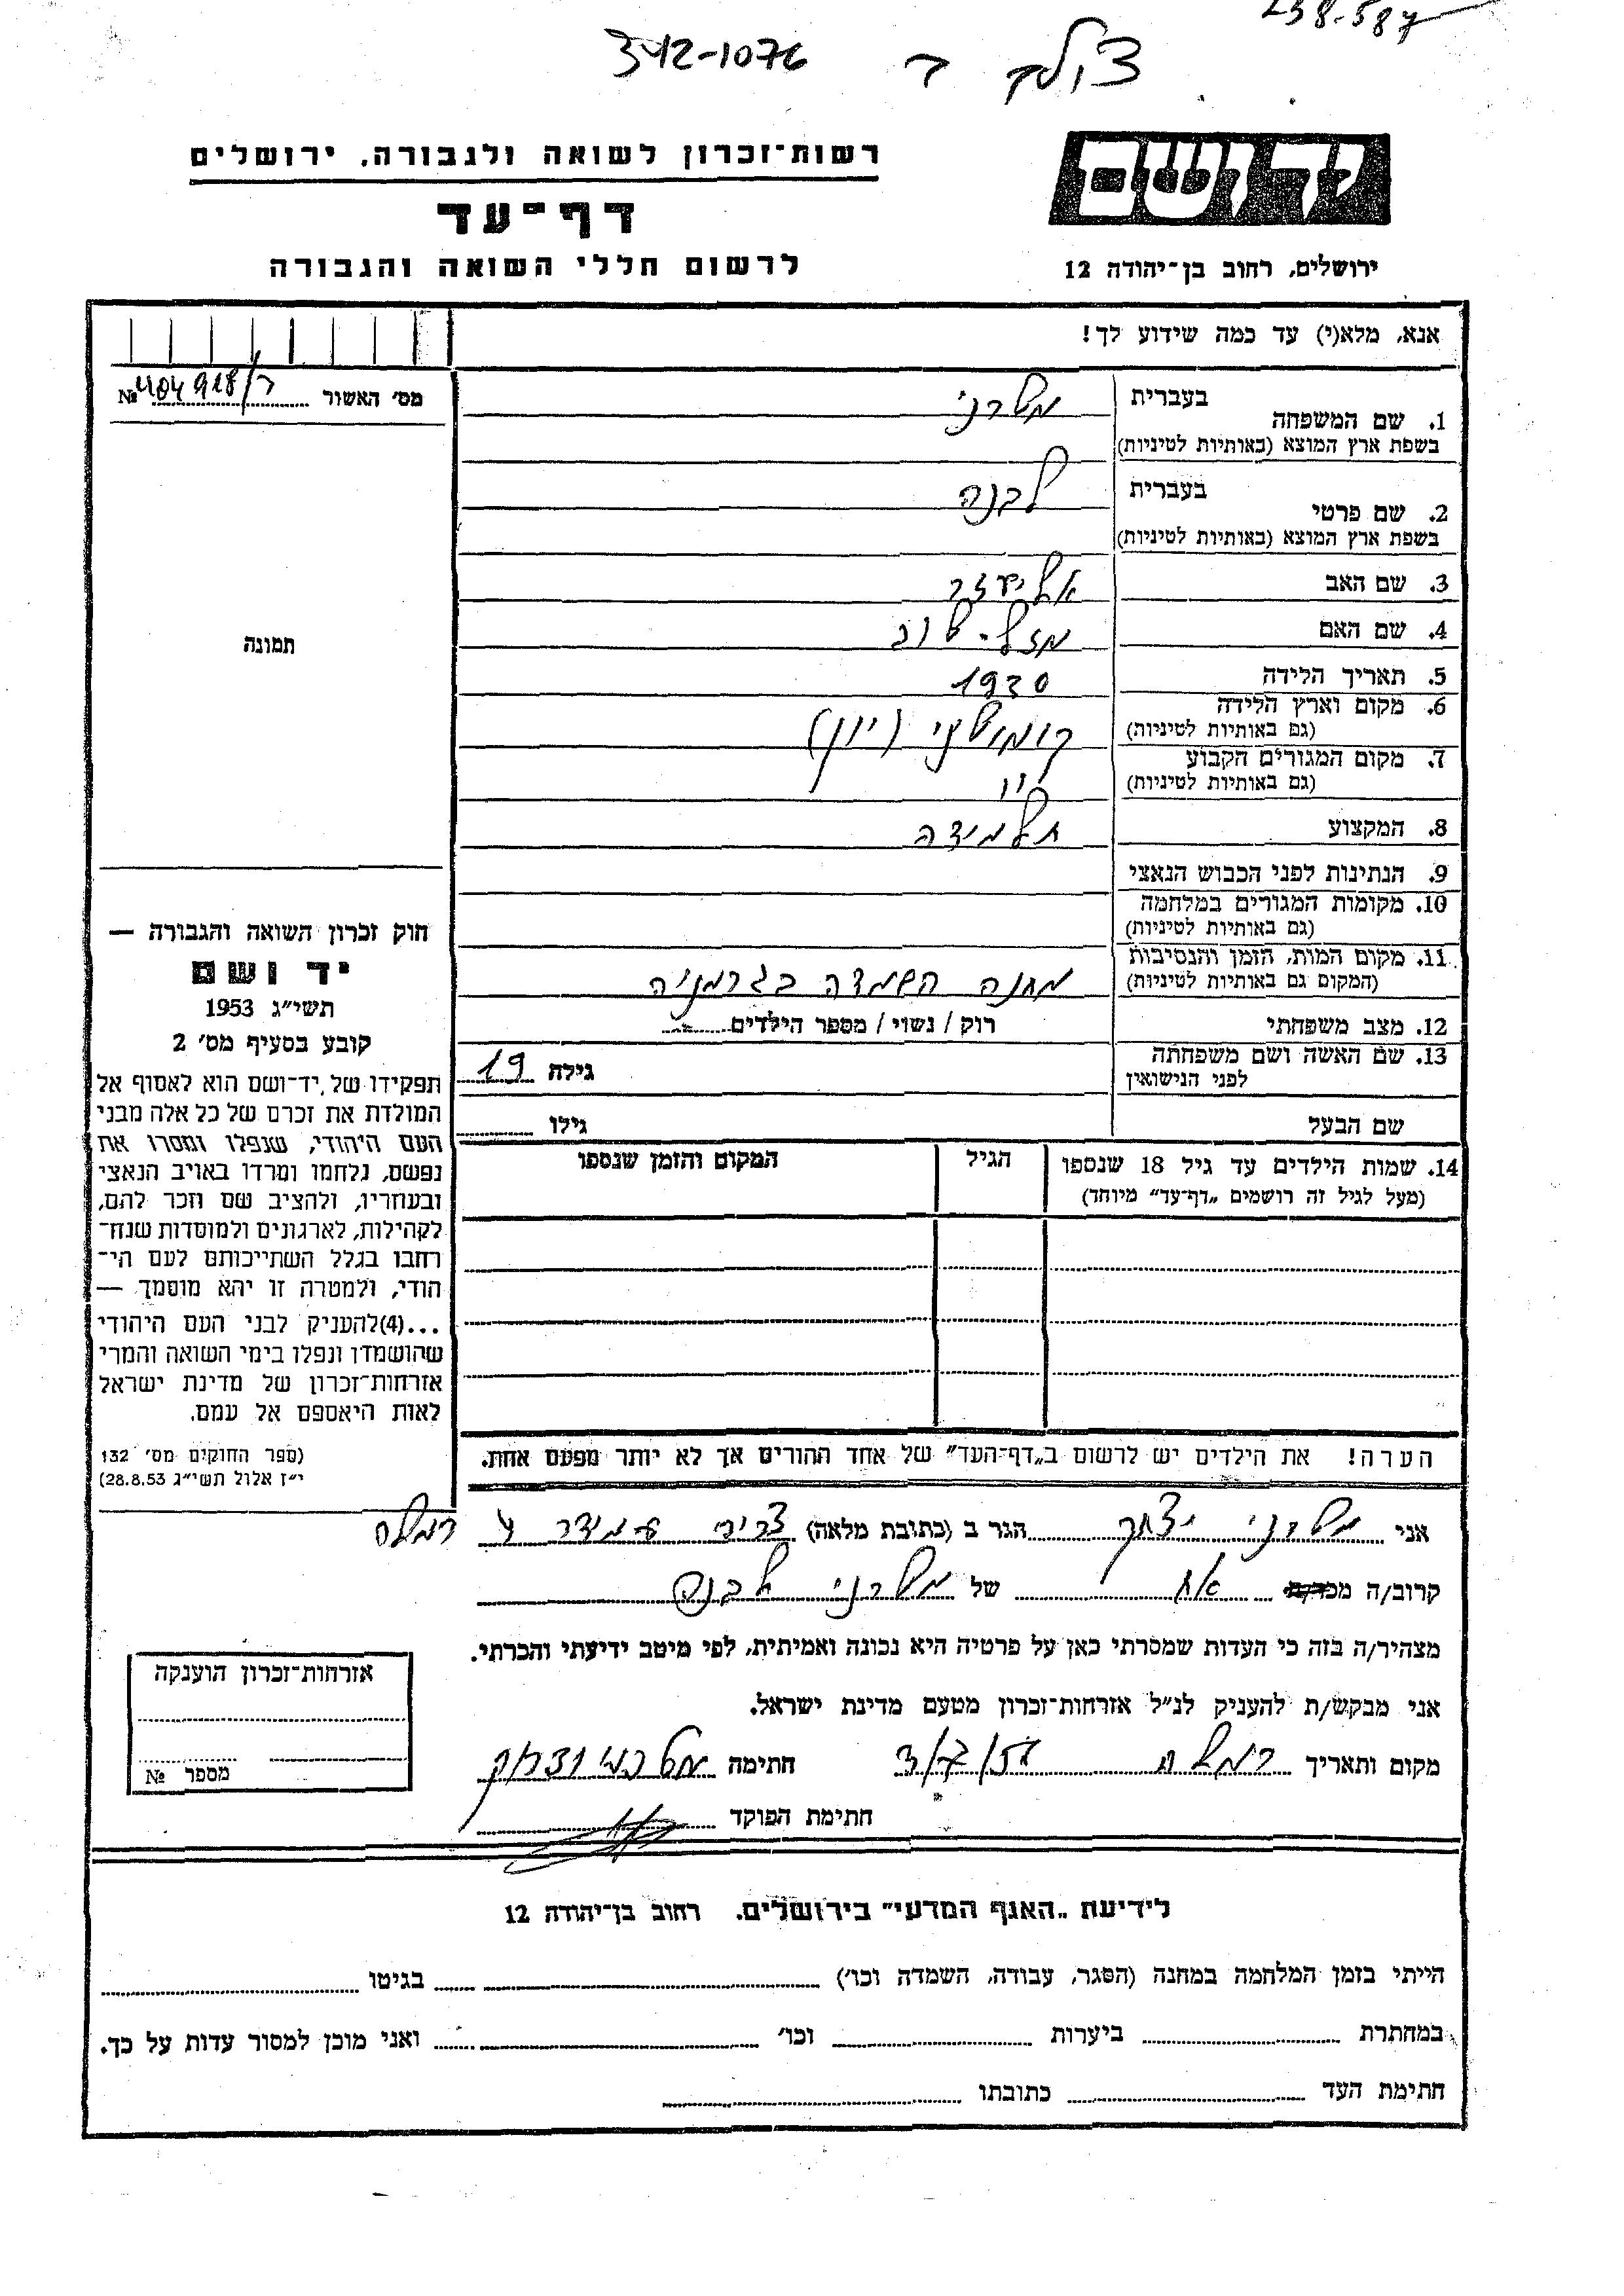 238-587
342-1076
צולם ד
יד ושם
רשות־זכרון לשואה ולגבורה, ירושלים
דף־עד
לרשום חללי השואה והגבורה
ירושלים, רחוב בן־יהודה 12
אנא, מלא(י) עד כמה שידוע לך!
מס׳ האשור 404918/ד №
1. שם המשפחה בעברית מטרני
בשפת ארץ המוצא (באותיות לטיניות)
2. שם פרטי בעברית לבנה
בשפת ארץ המוצא (באותיות לטיניות)
3. שם האב אליעזר
4. שם האם מזל-טוב
5. תאריך הלידה 1920
6. מקום וארץ הלידה
(גם באותיות לטיניות) קומוטיני (יוון)
7. מקום המגורים הקבוע
(גם באותיות לטיניות) יוון
8. המקצוע תלמידה
9. הנתינות לפני הכבוש הנאצי
10. מקומות המגורים במלחמה
(גם באותיות לטיניות)
11. מקום המות, הזמן והנסיבות
(המקום גם באותיות לטיניות) מחנה השמדה בגרמניה
12. מצב משפחתי רוק / נשוי / מספר הילדים
13. שם האשה ושם משפחתה
לפני הנישואין גילה 19
שם הבעל גילו
14. שמות הילדים עד גיל 18 שנספו הגיל המקום והזמן שנספו
(מעל לגיל זה רושמים „דף־עד״ מיוחד)
הערה! את הילדים יש לרשום ב„דף־העד״ של אחד ההורים אך לא יותר מפעם אחת.
תמונה
חוק זכרון השואה והגבורה —
יד ושם
תשי״ג 1953
קובע בסעיף מס׳ 2
תפקידו של יד־ושם הוא לאסוף אל
המולדת את זכרם של כל אלה מבני
העם היהודי, שנפלו ומסרו את
נפשם, נלחמו ומרדו באויב הנאצי
ובעוזריו, ולהציב שם וזכר להם,
לקהילות, לארגונים ולמוסדות שנח־
רחבו בגלל השתייכותם לעם הי־
הודי, ולמטרה זו יהא מוסמך —
...(4)להעניק לבני העם היהודי
שהושמדו ונפלו בימי השואה והמרי
אזרחות־זכרון של מדינת ישראל
לאות היאספם אל עמם.
(ספר החוקים מס׳ 132
י״ז אלול תשי״ג 28.8.53)
אני מטרני יצחק הגר ב (כתובת מלאה) צריף עמידר רמלה
קרוב/ה אח של מטרני לבנה
מצהיר/ה בזה כי העדות שמסרתי כאן על פרטיה היא נכונה ואמיתית, לפי מיטב ידיעתי והכרתי.
אני מבקש/ת להעניק לנ״ל אזרחות־זכרון מטעם מדינת ישראל.
מקום ותאריך רמלה חתימה
חתימת הפוקד
אזרחות־זכרון הוענקה
מספר №
לידיעת „האגף המדעי״ בירושלים. רחוב בן־יהודה 12
הייתי בזמן המלחמה במחנה (הסגר, עבודה, השמדה וכו׳) בגיטו
במחתרת ביערות וכו׳ ואני מוכן למסור עדות על כך.
חתימת העד כתובתו